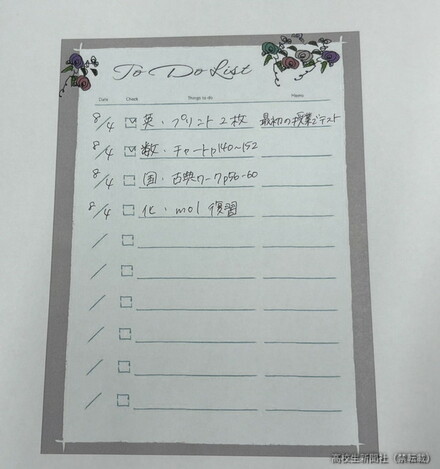 To Do List
Date Check Things to do Memo
8/4 ☑ 英・プリント2枚 最初の授業でテスト
8/4 ☑ 数・チャートp140~152
8/4 □ 国・古典ワークp56-60
8/4 □ 化・mol 復習
/ □
/ □
/ □
/ □
/ □
/ □
高校生新聞社（禁転載）